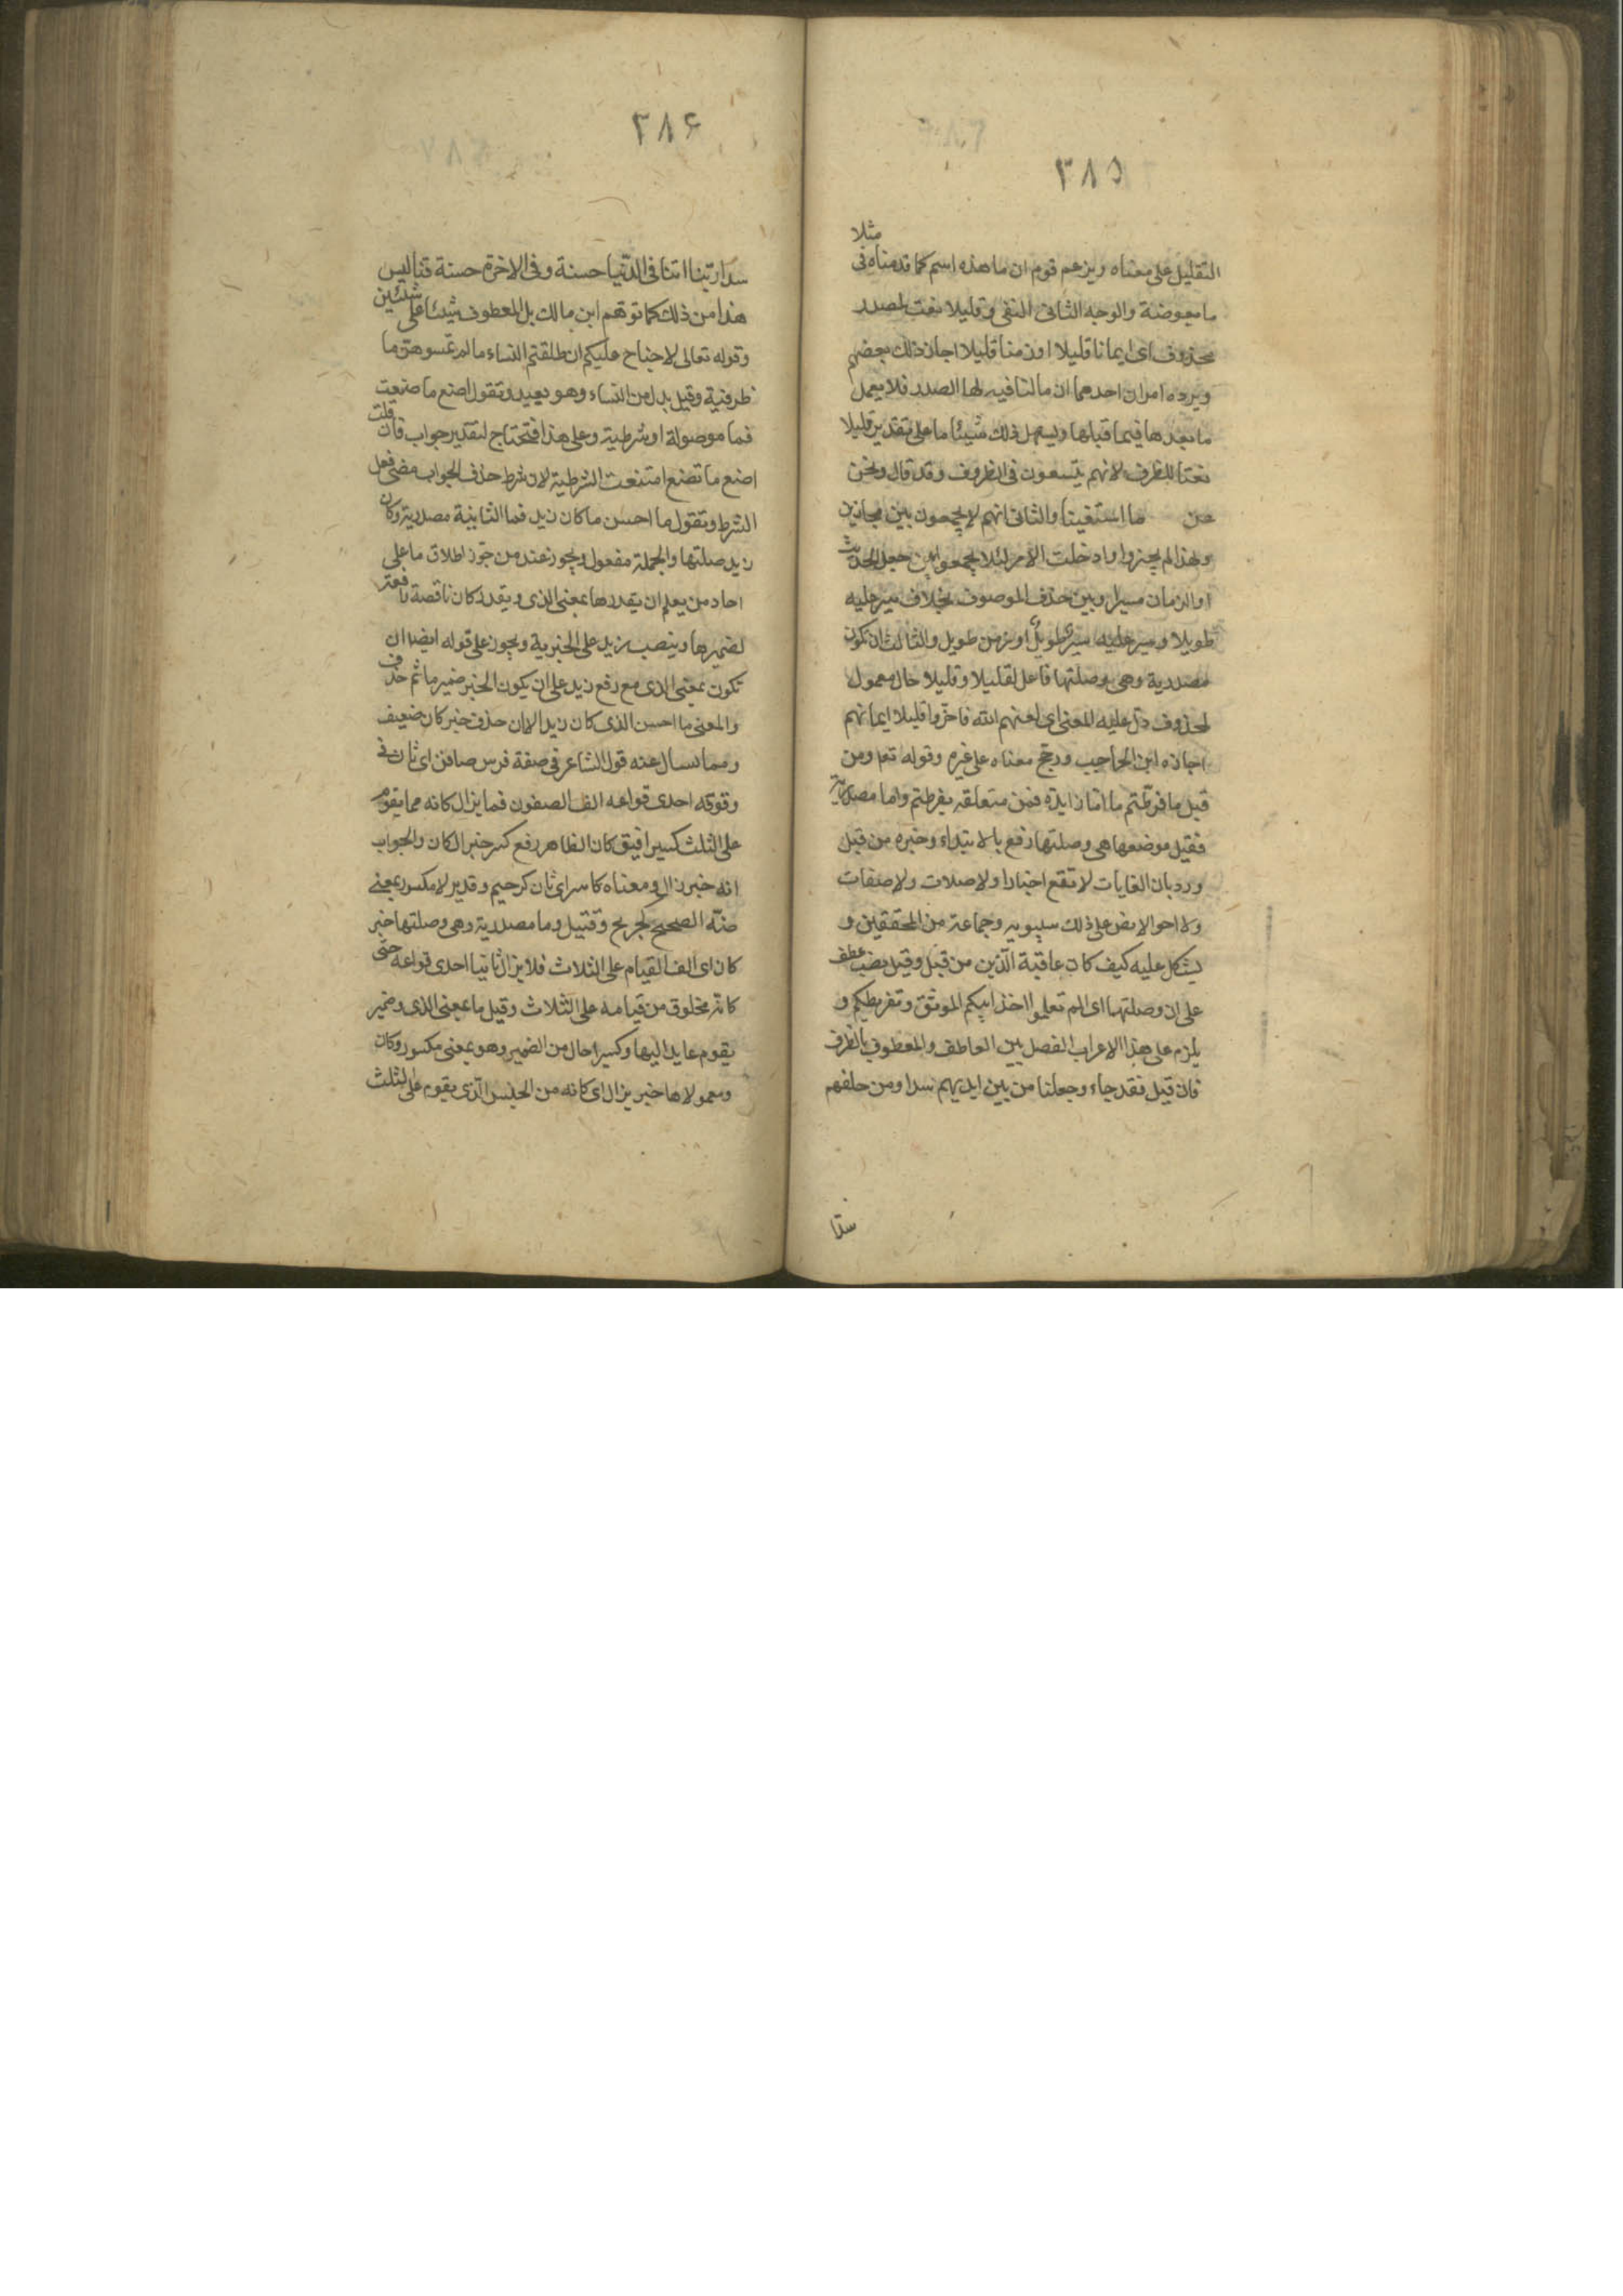 ٣٨٥
مثلا
التقليل على معناه ويزعم قوم ان ما هذه اسم كما قدمناه فى
ما بعوضة والوجه الثانى النفى وقليلا نعت لمصدر
محذوف اى ايمانا قليلا او زمنا قليلا اجاز ذلك بعضهم
ويرده امران احدهما ان ما النافيه لها الصدر فلا يعمل
ما بعدها فيما قبلها ويسهل ذلك شيئا ما على تقدير قليلا
نعتا للظرف لانهم يتسعون فى الظروف وقد قال ونحن
عن ما استغينا والثانى انهم لا يجمعون بين مجازين
ولهذا لم يجيزوا دخلت الامر لئلا يجمعوا بين جعل الحدث
او الزمان مسيرا وبين حذف الموصوف بخلاف سير عليه
طويلا وسير عليه سير طويل او زمن طويل والثالث ان تكون
مصدرية وهى وصلتها فاعل لقليلا وقليلا حال معمول
لمحذوف دل عليه المعنى اى لعنهم الله فاخروا قليلا ايمانهم
اجازه ابن الحاجب ورجح معناه على غيره وقوله تعم ومن
قبل ما فرطتم ما اما زايدة فمن متعلقه بفرطتم واما مصدرية
فقيل موضعها هى وصلتها رفع بالابتداء وخبره من قبل
ورد بان الغايات لا تقع اخبارا ولا صلات ولا صفات
ولا احوالا نص على ذلك سيبويه وجماعة من المحققين و
يشكل عليه كيف كان عاقبة الذين من قبل وقيل نصب عطف
على ان وصلتها اى الم تعلموا اخذ ابيكم الموثق وتفريطكم و
يلزم على هذا الاعراب الفصل بين العاطف والمعطوف بالظرف
فان قيل فقد جاء وجعلنا من بين ايديهم سدا ومن خلفهم
سدا
٣٨۶
سدا ربنا اتنا فى الدنيا حسنة وفى الاخرة حسنة قنا ليس
هذا من ذلك كما توهم ابن مالك بل المعطوف شيئا على شيئين
وقوله تعالى لا جناح عليكم ان طلقتم النساء ما لم تمسوهن ما
ظرفية وقيل بدل من النساء وهو بعيد وتقول اصنع ما صنعت
فما موصولة او شرطية وعلى هذا فتحتاج لتقدير جواب فان قلت
اصنع ما تصنع امتنعت الشرطية لان شرط حذف الجواب مضى فعل
الشرط وتقول ما احسن ما كان زيد فما الثانية مصدرية وكان
زيد صلتها والجملة مفعول ويجوز عند من جوز اطلاق ما على
احاد من يعلم ان يقدرها بمعنى الذى ويقدر كان ناقصة رافعة
لضميرها وينصب زيد على الخبرية ويجوز على قوله ايضا ان
تكون بمعنى الذى مع رفع زيد على ان يكون الخبر ضمير ما ثم حذف
والمعنى ما احسن الذى كان زيد الا ان حذف خبر كان ضعيف
ومما يسال عنه قول الشاعر فى صفة فرس صافن اى ثان فى
وقوفه احدى قوائمه الف الصفون فما يزال كانه مما يقوم
على الثلث كسيرا فيق كان الظاهر رفع كسر خبرا لكان والجواب
انه خبر زال ومعناه كاسر اى ثان كرحيم وقدير لا مكسور بمعنى
ضد الصحيح لجريح وقتيل وما مصدرية وهى وصلتها خبر
كان اى الف القيام على الثلاث فلا يزال ثانيا احدى قوائمه حتى
كانه مخلوق من قيامه على الثلاث وقيل ما بمعنى الذى وضمير
يقوم عايد اليها وكسيرا حال من الضمير وهو بمعنى مكسور وكان
ومعمولاها خبر يزال اى كانه من الجنس الذى يقوم على الثلث